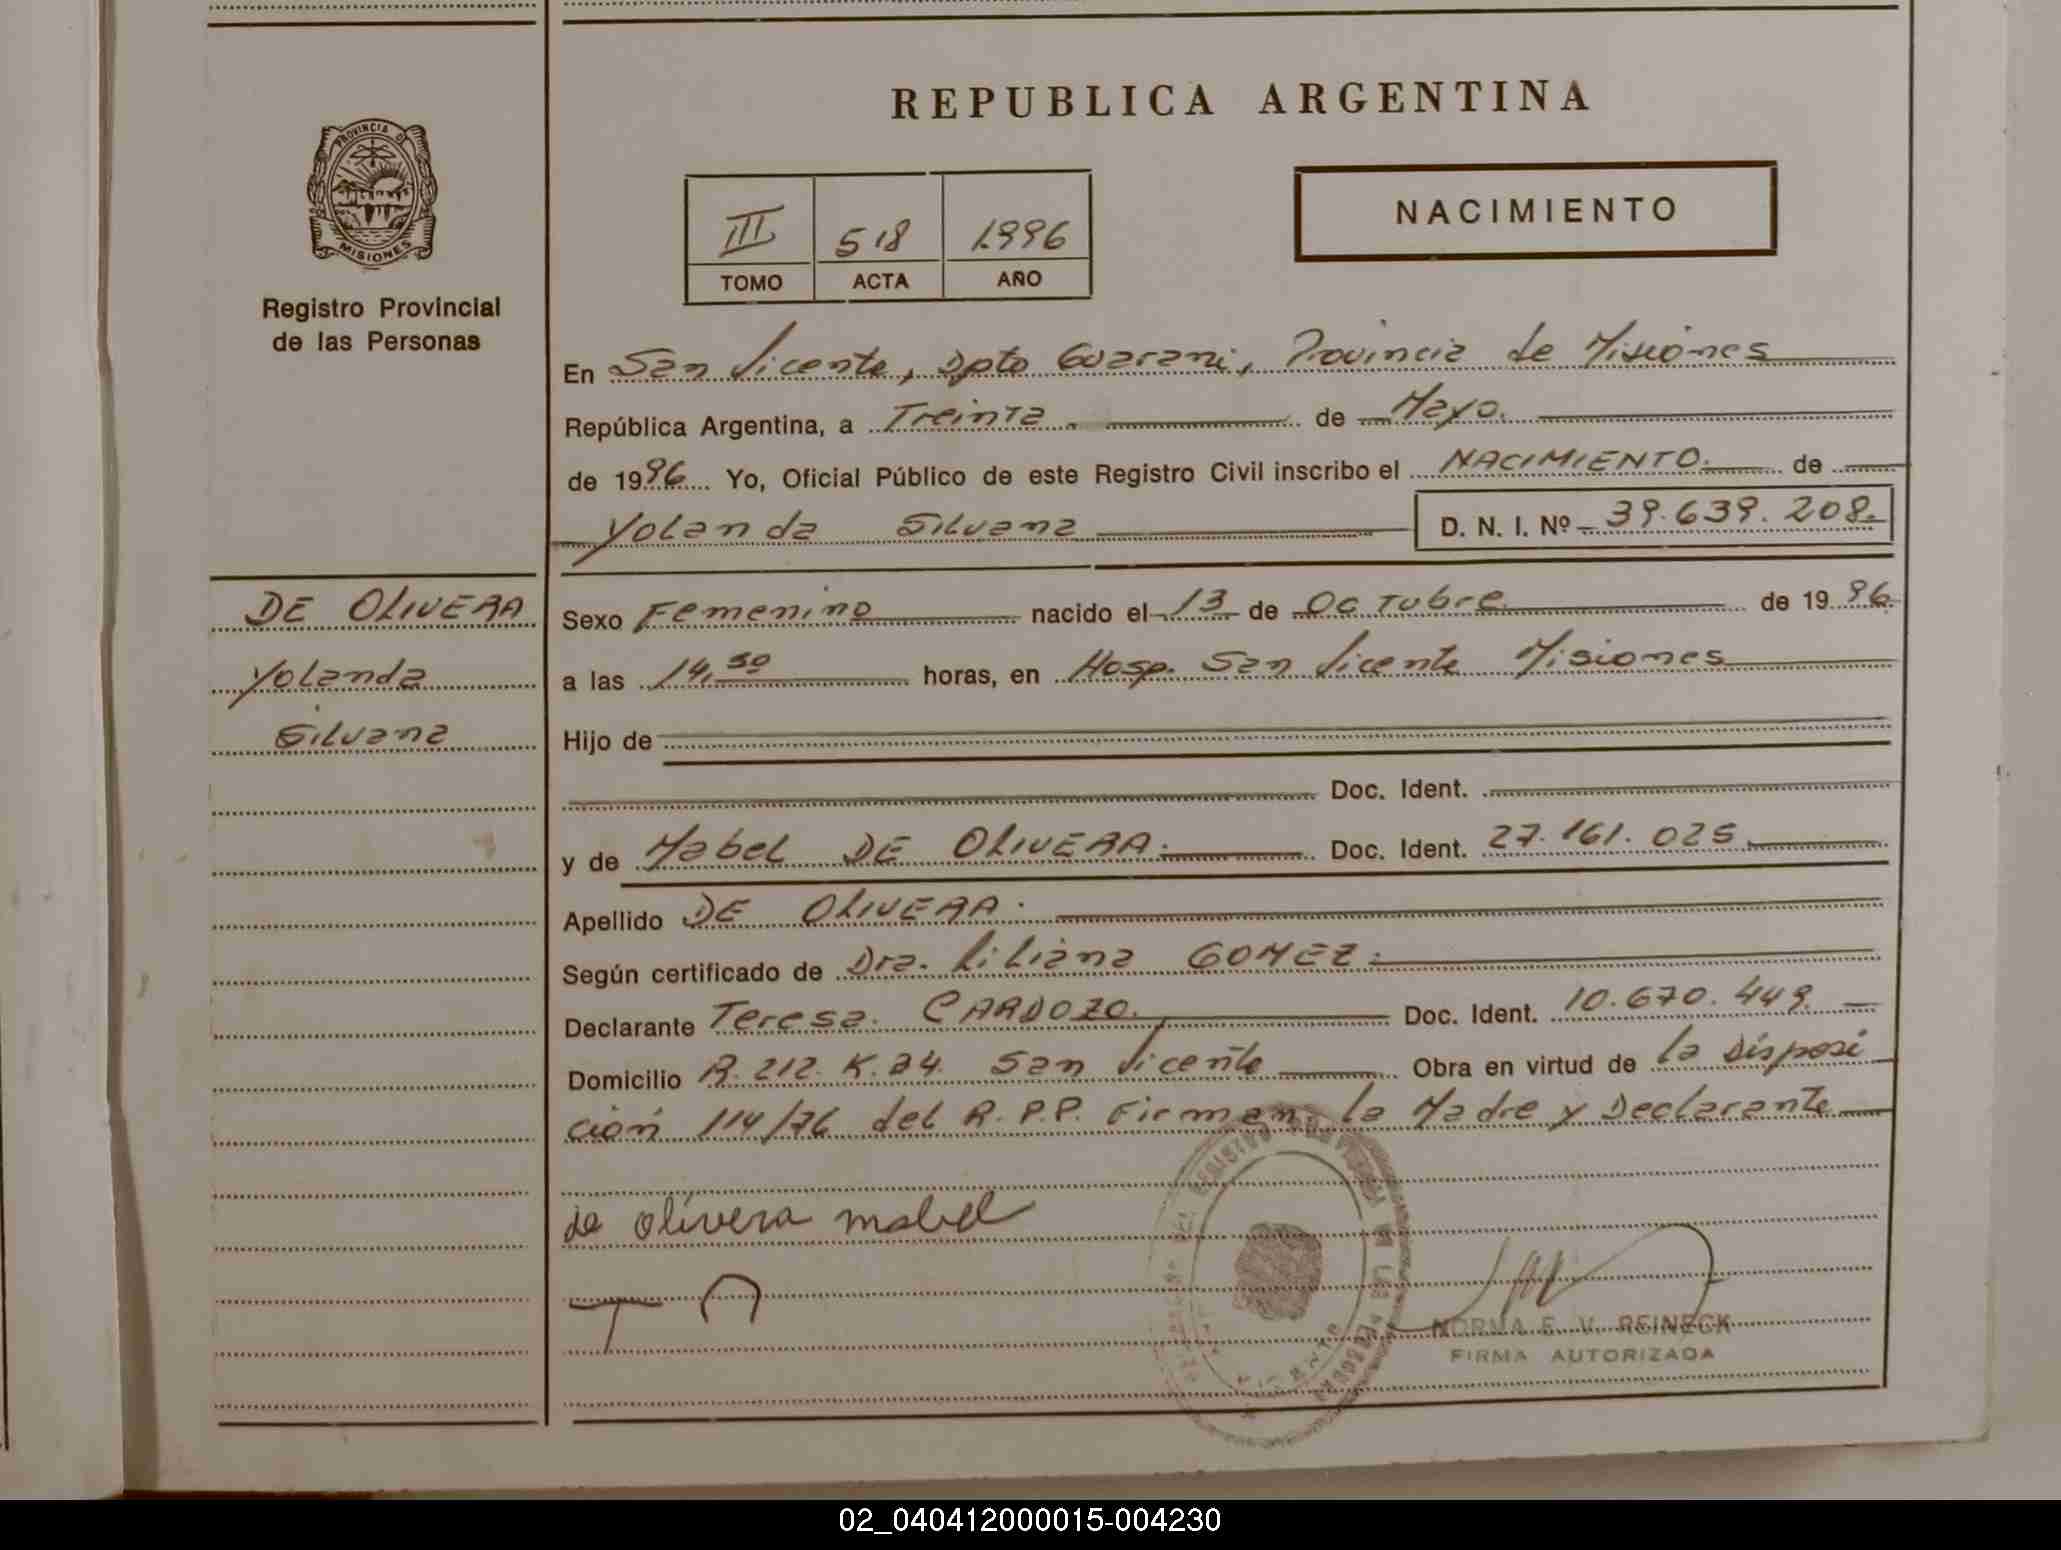 REPUBLICA ARGENTINA
PROVINCIA DE
MISIONES
Registro Provincial
de las Personas
III 518 1996
TOMO ACTA AÑO
NACIMIENTO
En San Vicente, Dpto Guarani, Provincia de Misiones
República Argentina, a Treinta. de Mayo.
de 1996 Yo, Oficial Público de este Registro Civil inscribo el NACIMIENTO. de
Yolanda Silvana D. N. I. Nº 39.639.208.
DE OLIVERA
Yolanda
Silvana
Sexo Femenino nacido el 13 de Octubre de 1996
a las 14,30 horas, en Hosp. San Vicente Misiones
Hijo de
Doc. Ident.
y de Mabel DE OLIVERA. Doc. Ident. 27.161.025.
Apellido DE OLIVERA.
Según certificado de Dra. Liliana GOMEZ.
Declarante Teresa. CARDOZO. Doc. Ident. 10.670.449.
Domicilio R. 212. K. 34. San Vicente Obra en virtud de la Disposi
ción 114/76 del R.P.P. Firman la Madre y Declarante
de olivera mabel
NORMA E. V. REINECK
FIRMA AUTORIZADA
02_040412000015-004230